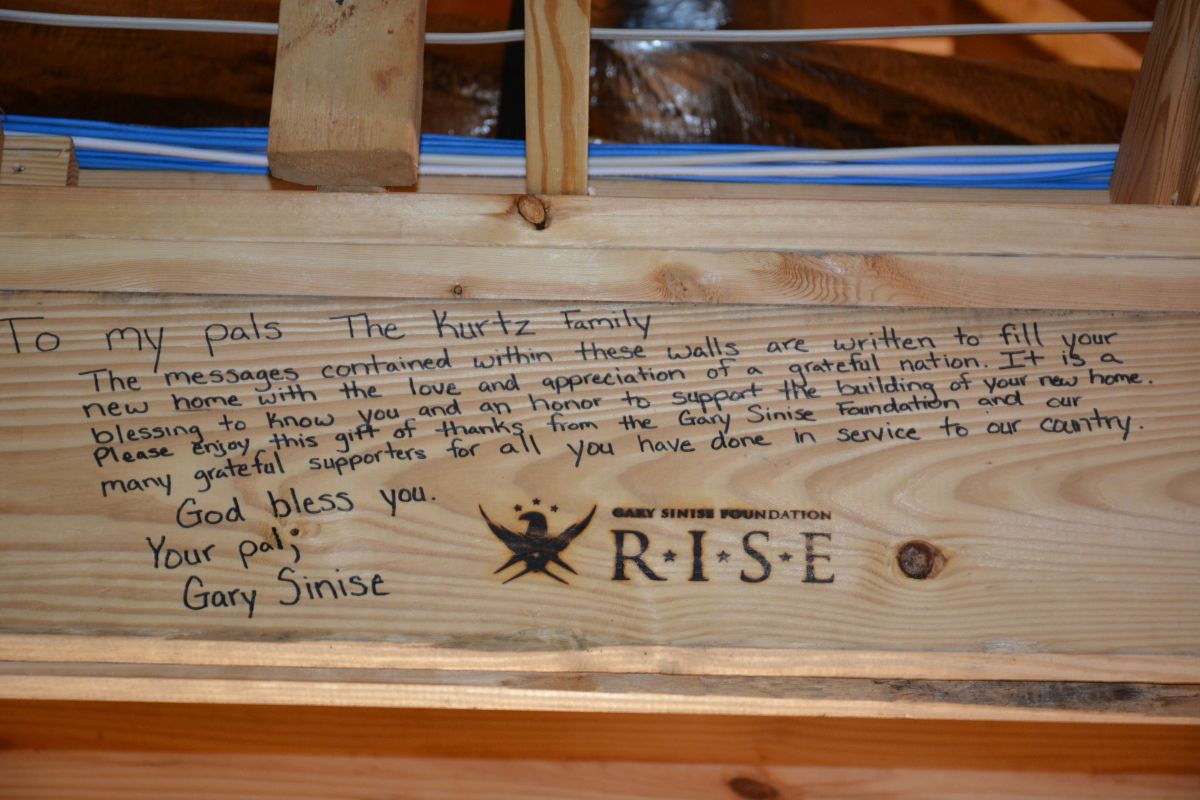 To my pals The Kurtz Family
The messages contained within these walls are written to fill your
new home with the love and appreciation of a grateful nation. It is a
blessing to know you and an honor to support the building of your new home.
Please enjoy this gift of thanks from the Gary Sinise Foundation and our
many grateful supporters for all you have done in service to our country.
God bless you.
Your pal,
Gary Sinise
GARY SINISE FOUNDATION
R★I★S★E